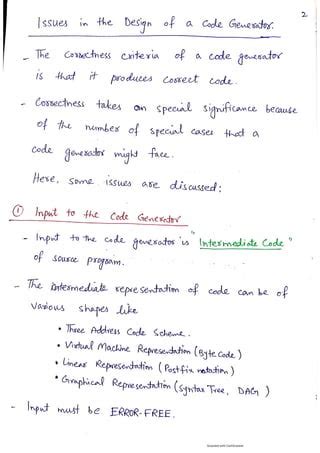 2
Issues in the Design of a Code Generator.
- The Correctness criteria of a code generator
is that it produces correct code.
- Correctness takes on special significance because
of the number of special cases that a
code generator might face.
Here, some issues are discussed:
① Input to the Code Generator
- Input to the code generator is "Intermediate Code"
of source program.
- The intermediate representation of code can be of
various shapes like
• Three Address Code Scheme.
• Virtual Machine Representation (Byte Code)
• Linear Representation (Postfix notation)
• Graphical Representation (Syntax Tree, DAG)
- Input must be ERROR-FREE.
Scanned with CamScanner